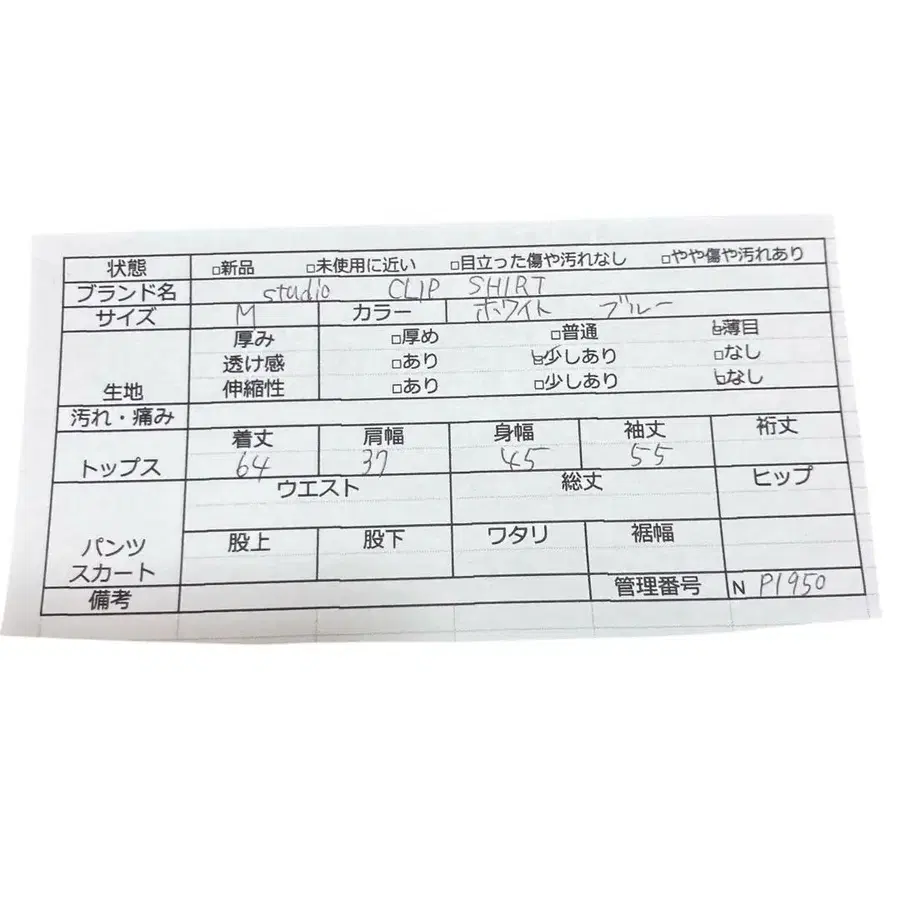 状態 □新品 □未使用に近い □目立った傷や汚れなし □やや傷や汚れあり
ブランド名 studio CLIP SHIRT
サイズ M カラー ホワイト ブルー
厚み □厚め □普通 ☑薄目
透け感 □あり ☑少しあり □なし
生地 伸縮性 □あり □少しあり ☑なし
汚れ・痛み
着丈 肩幅 身幅 袖丈 裄丈
トップス 64 37 45 55
ウエスト 総丈 ヒップ
股上 股下 ワタリ 裾幅
パンツ
スカート
備考 管理番号 N P1950